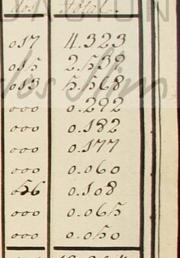 017 4.323
015 2.539
013 5.568
000 0.292
000 0.182
000 0.177
000 0.060
056 0.108
000 0.065
000 0.050